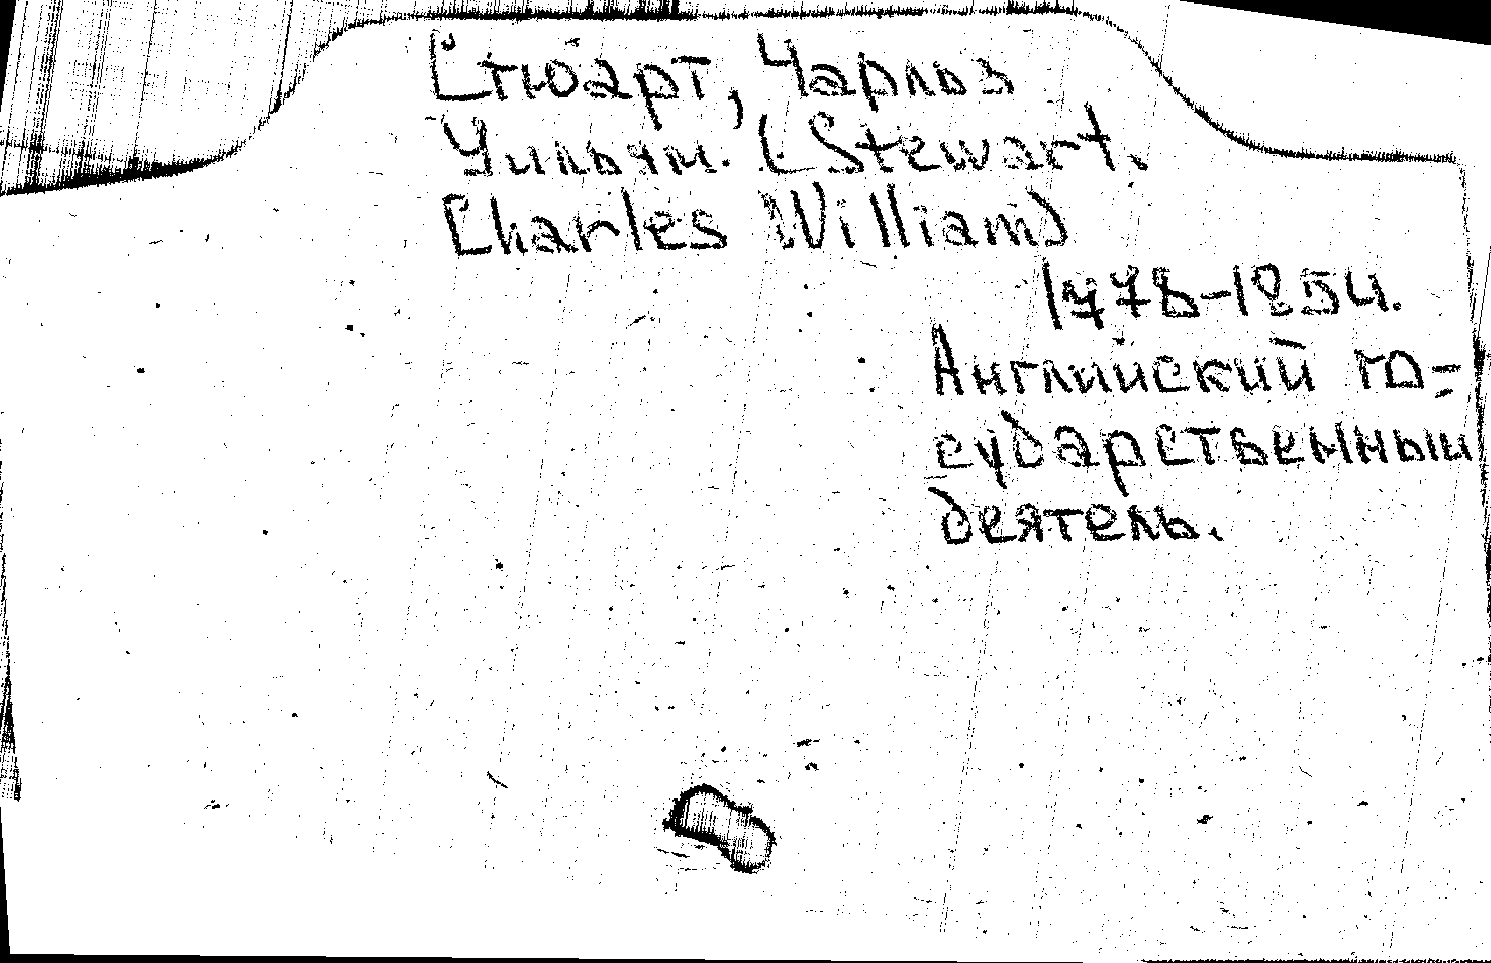 Стюарт, Чарльз
Уильям. (Stewart.
Charles William)
1778-1854.
Английский го=
сударственный
деятель.